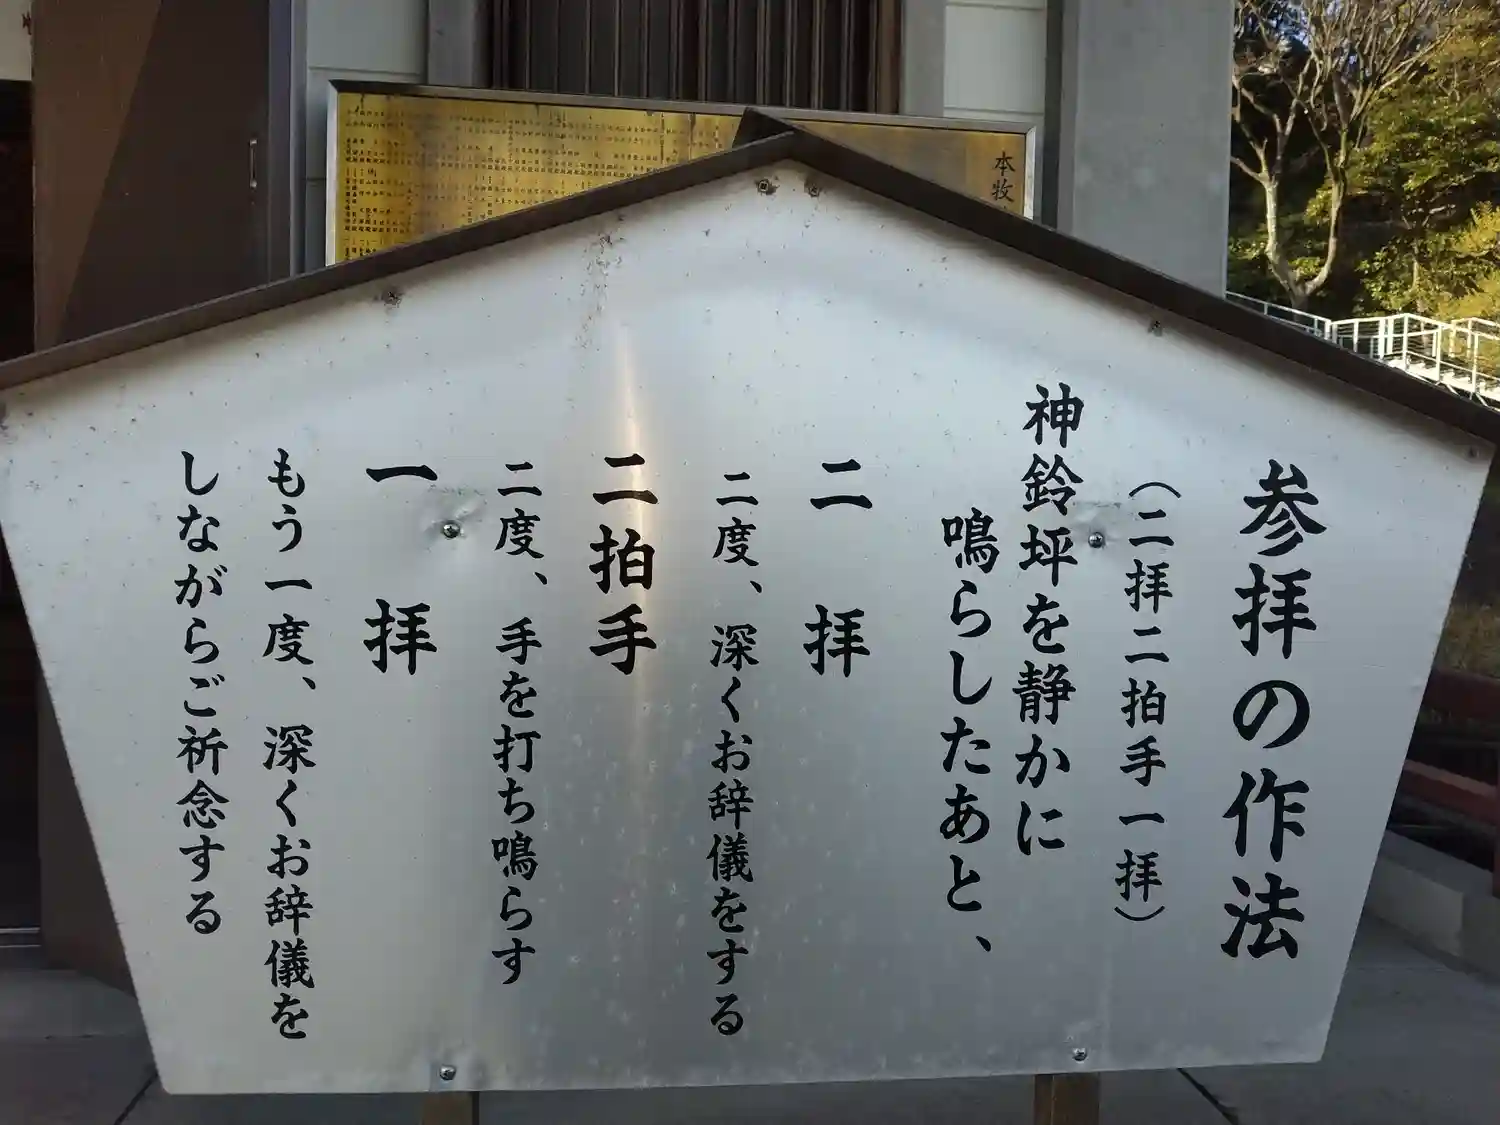 参拝の作法
（二拝二拍手一拝）
神鈴坪を静かに
鳴らしたあと、
二拝
二度、深くお辞儀をする
二拍手
二度、手を打ち鳴らす
一拝
もう一度、深くお辞儀を
しながらご祈念する
本牧